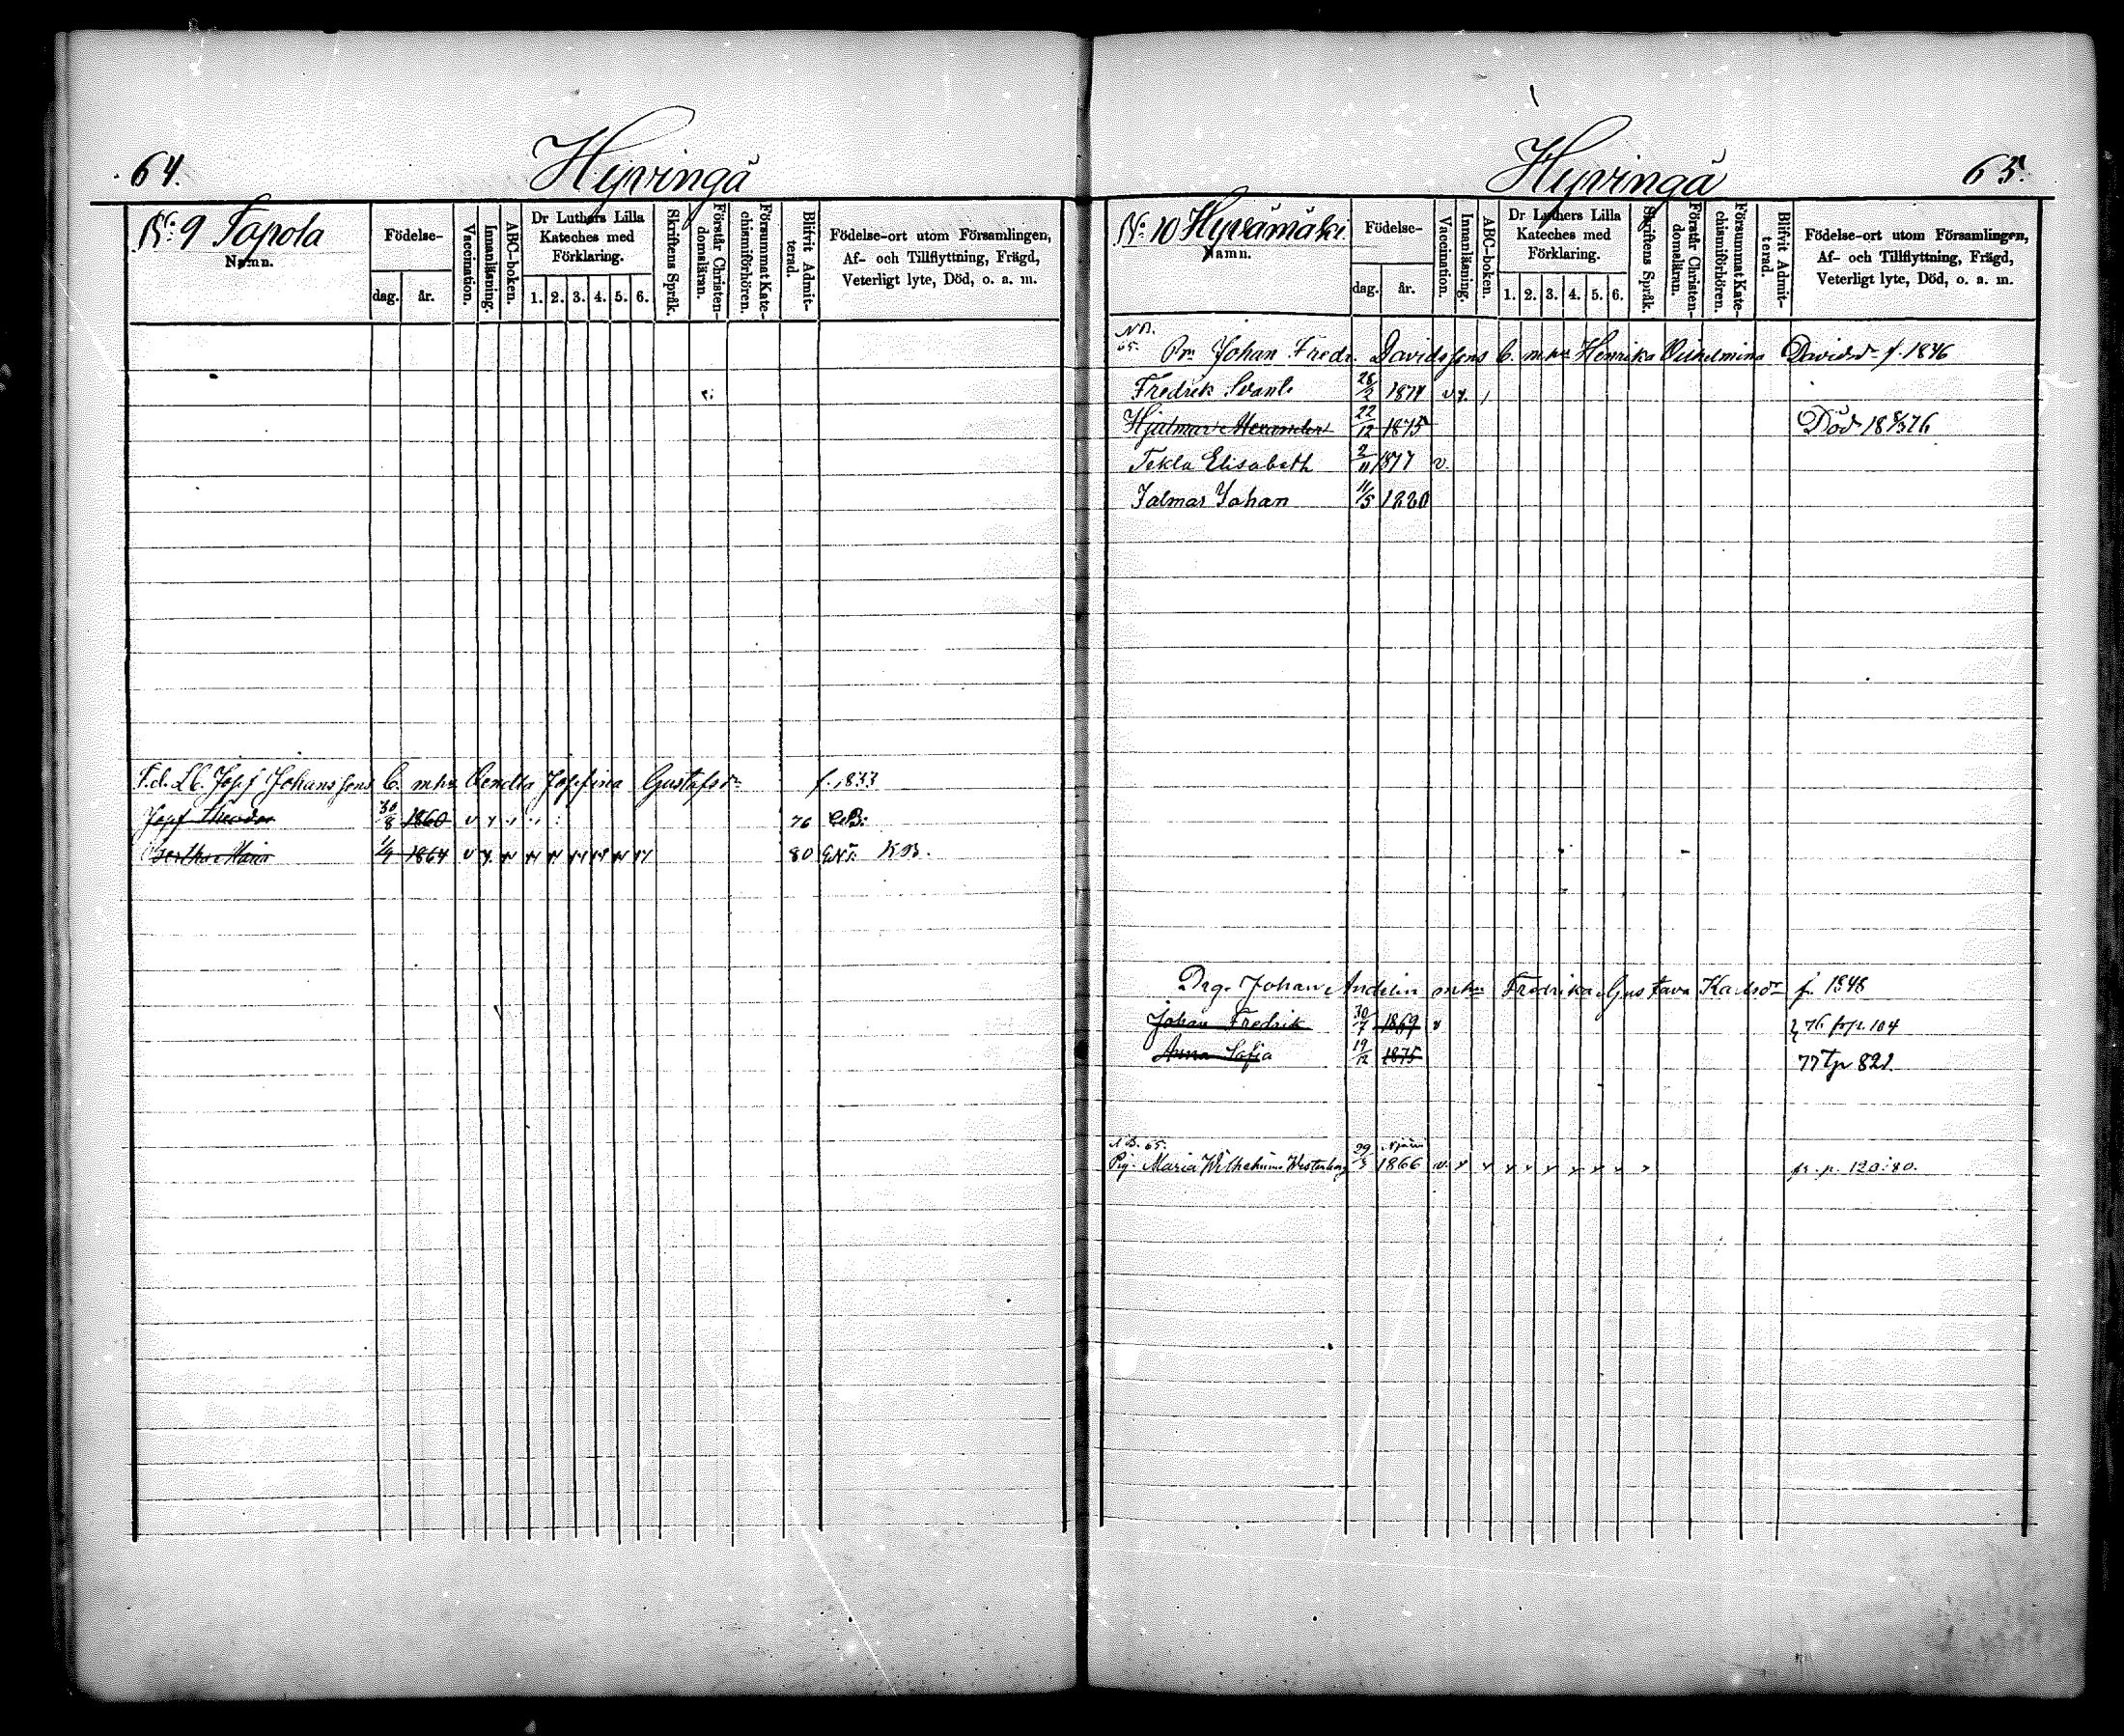 64.
Hyvingä
No: 9 Tapola
Namn.
Födelse-
dag.
år.
Vaccination.
Innanläsning.
ABC-boken.
Dr Luthers Lilla
Kateches med
Förklaring.
1. 2. 3. 4. 5. 6.
Skriftens Språk.
Förstår Christen-
domsläran.
Försummat Kate-
chismiförhören.
Blifvit Admit-
terad.
Födelse-ort utom Församlingen,
Af- och Tillflyttning, Frägd,
Veterligt lyte, Död, o. a. m.
F.d. Josf Johanssons b. m. hu Vendla Josfina Gustafsdr f. 1833
Josf Theodor 30/8 1860 v 76
Bertha Maria 1864 v 80 KB.
Hyvingä
65.
No: 10 Hyvämäki
Namn.
Födelse-
dag.
år.
Vaccination.
Innanläsning.
ABC-boken.
Dr Luthers Lilla
Kateches med
Förklaring.
1. 2. 3. 4. 5. 6.
Skriftens Språk.
Förstår Christen-
domsläran.
Försummat Kate-
chismiförhören.
Blifvit Admit-
terad.
Födelse-ort utom Församlingen,
Af- och Tillflyttning, Frägd,
Veterligt lyte, Död, o. a. m.
NB.
65.
Johan Fredr. Davidssons b. m. hu Henrika Vilhelmina Davidsdr f. 1846
Fredrik Svante 26/2 1874 v
Hjalmar Alexander 22/12 1875 Död 18 8/3 76
Tekla Elisabeth 2/11 1877 v.
Jalmar Johan 11/5 1880
Drg. Johan Andelin m hu Fredrika Gustava Karlsdr f. 1848
Johan Fredrik 30/7 1869 v 76 104
Anna Sofia 19/12 1875 77 tp 821
NB. 65.
Pig. Maria Vilhelmina Westerberg 29/3 1866 v fr. p. 120:80.